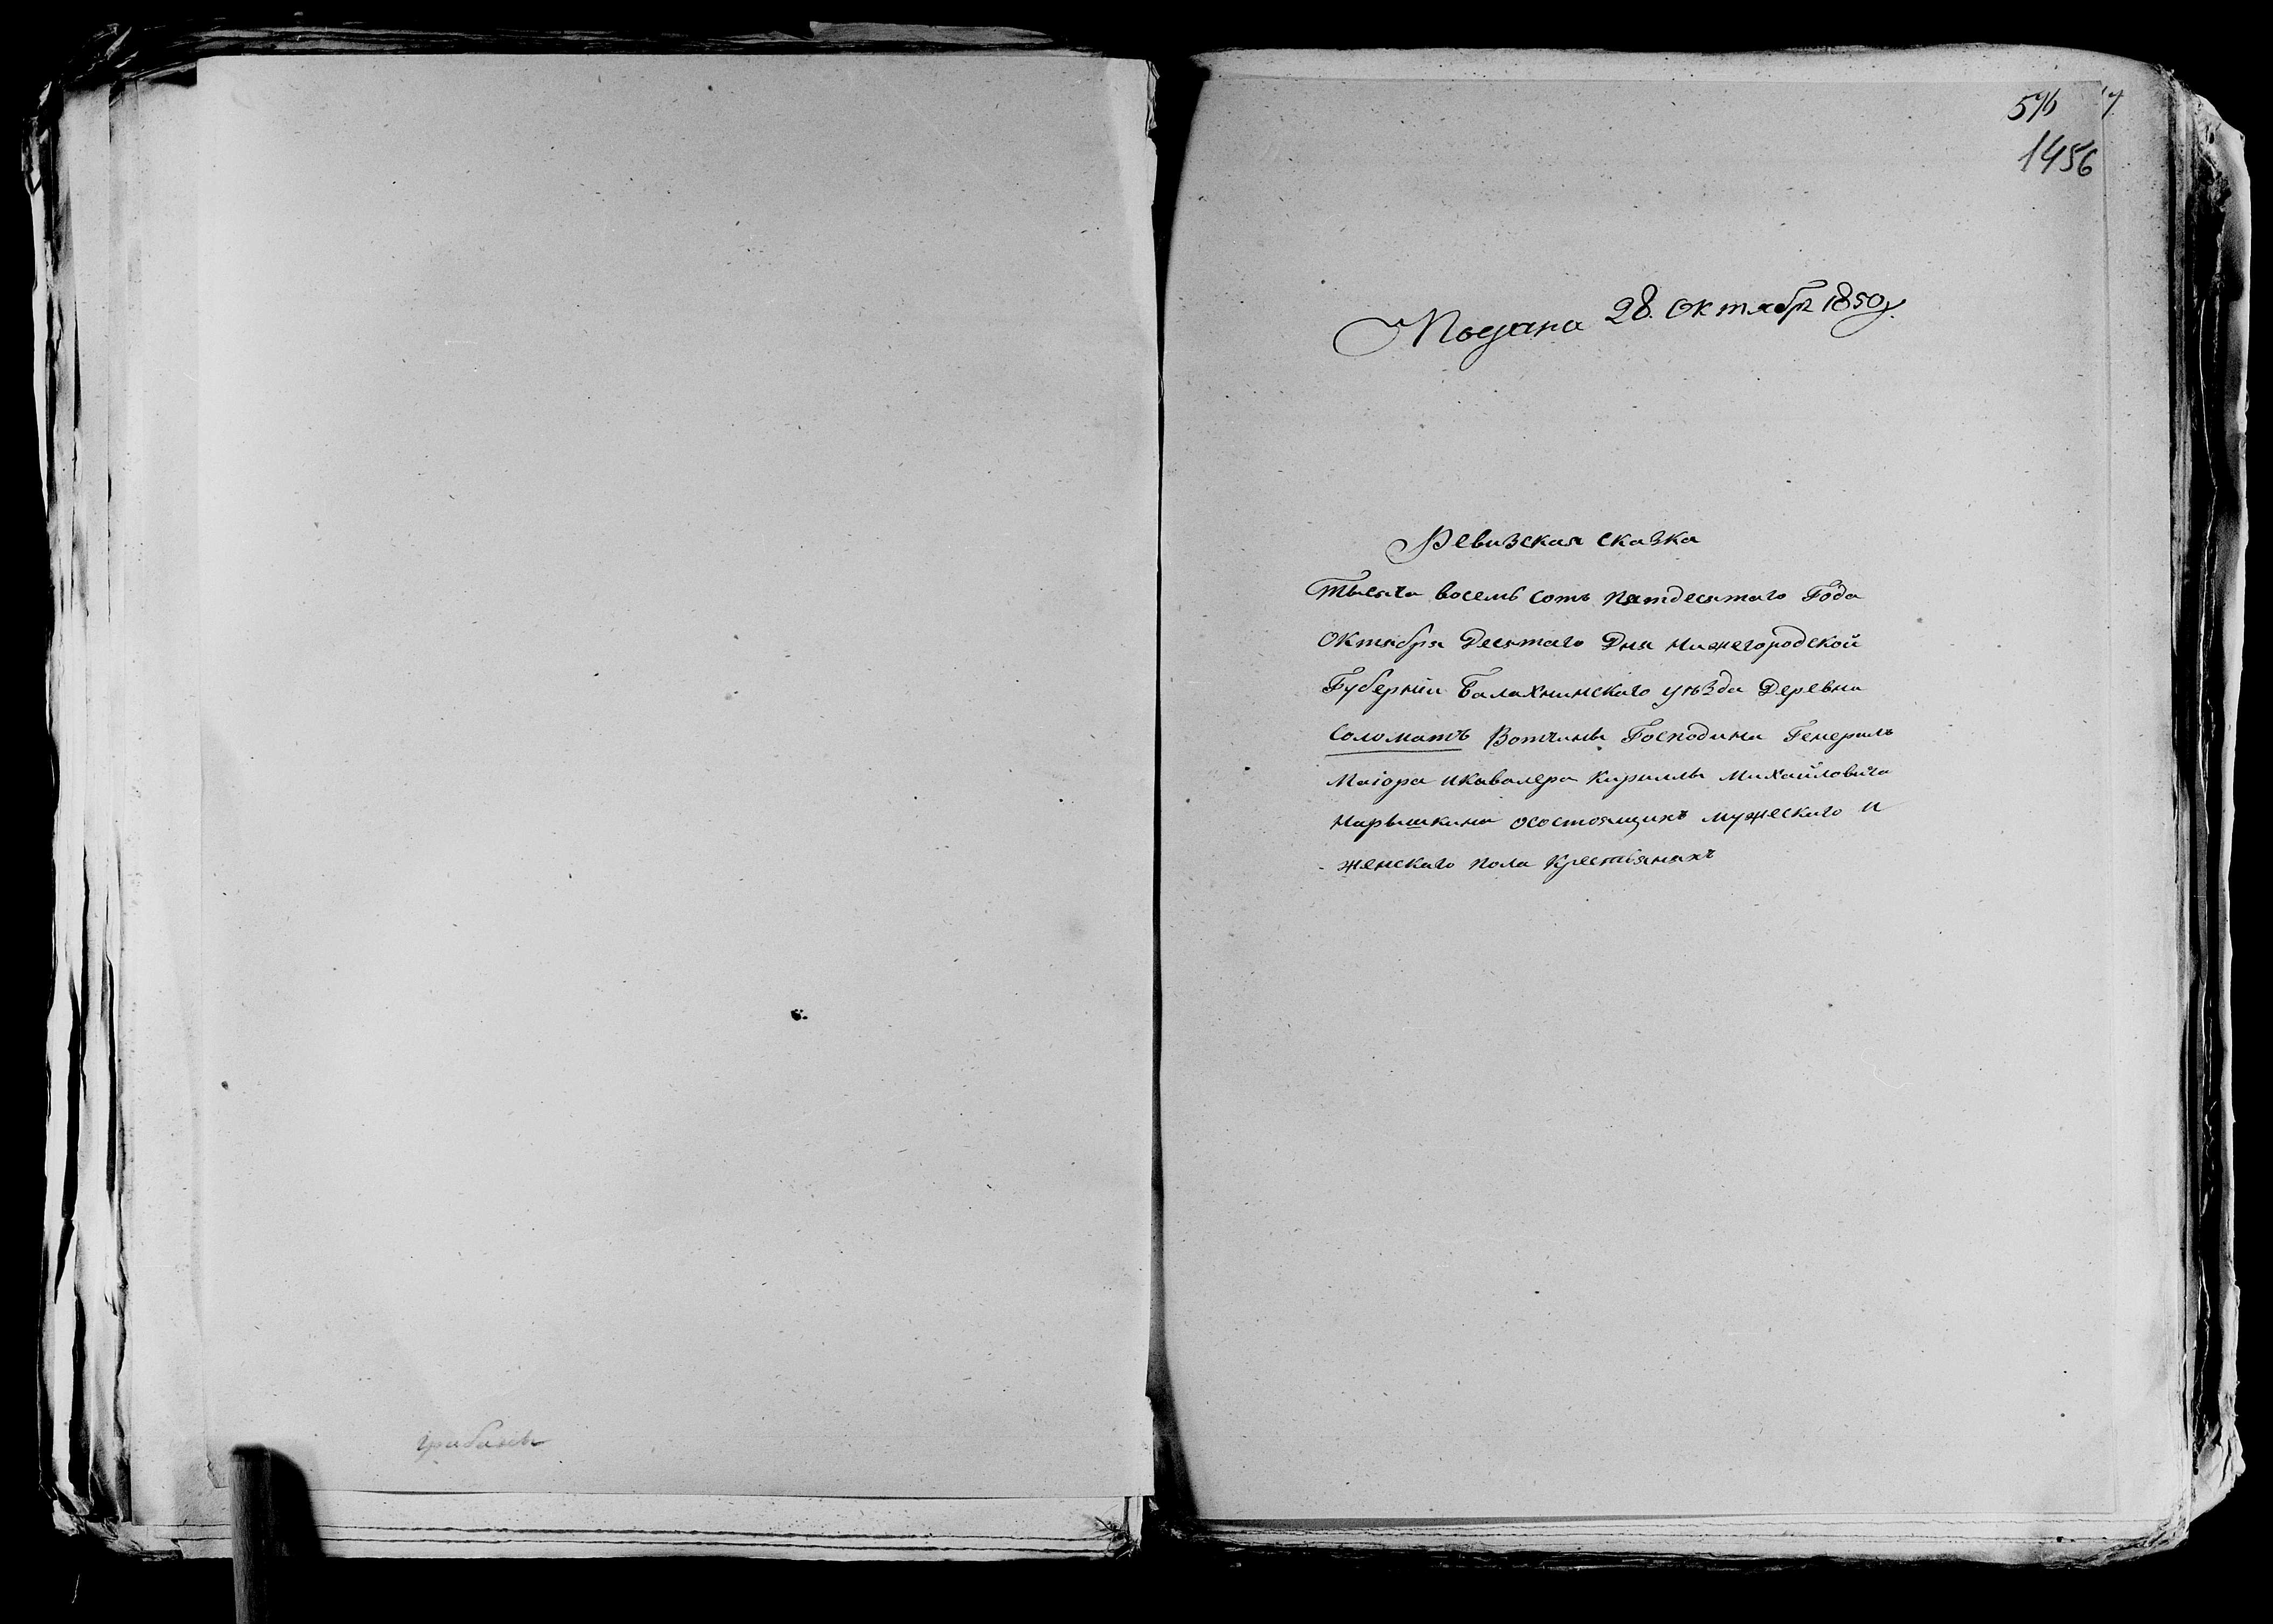 576
1456
Подана 28. Октябр 1850 г.
Ревизская сказка
Тысяча восемь сотъ пятдесятаго Года
Октября Десятаго Дня Нижегородской
Губерніи Балахнинскаго уѣзда Деревни
Соломатъ Вотчины Господина Генералъ
Маіора и Кавалера Кирилы Михайловича
Нарышкина о состоящихъ мужескаго и
женскаго пола Крестьянахъ